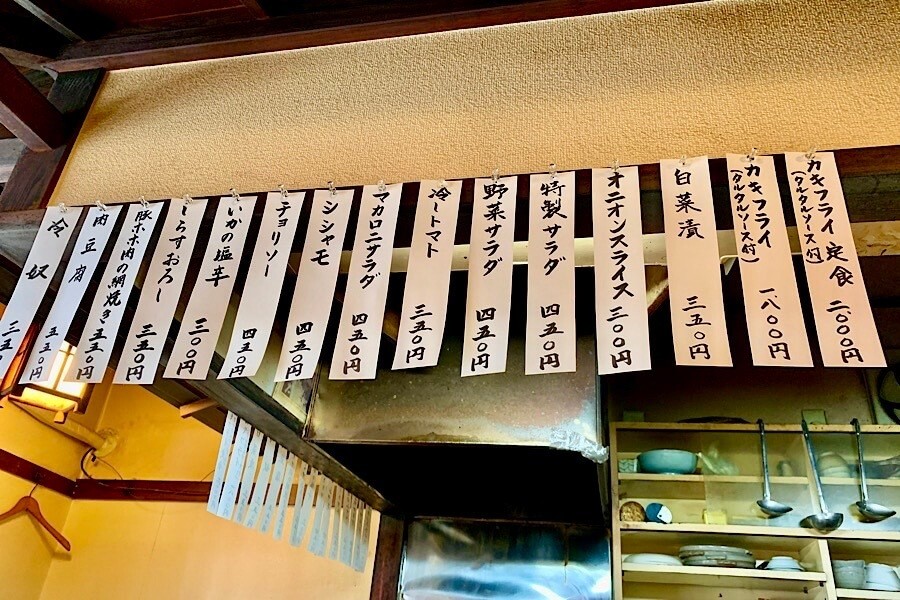 カキフライ定食
(タルタルソース付)
二〇〇〇円
カキフライ
(タルタルソース付)
一八〇〇円
白菜漬 三五〇円
オニオンスライス 三〇〇円
特製サラダ 四五〇円
野菜サラダ 四五〇円
冷トマト 三五〇円
マカロニサラダ 四五〇円
シシャモ 四五〇円
チョリソー 四五〇円
いかの塩辛 三〇〇円
しらすおろし 三五〇円
豚ホホ肉の網焼き 五五〇円
肉豆腐 五五〇円
冷奴 三五〇